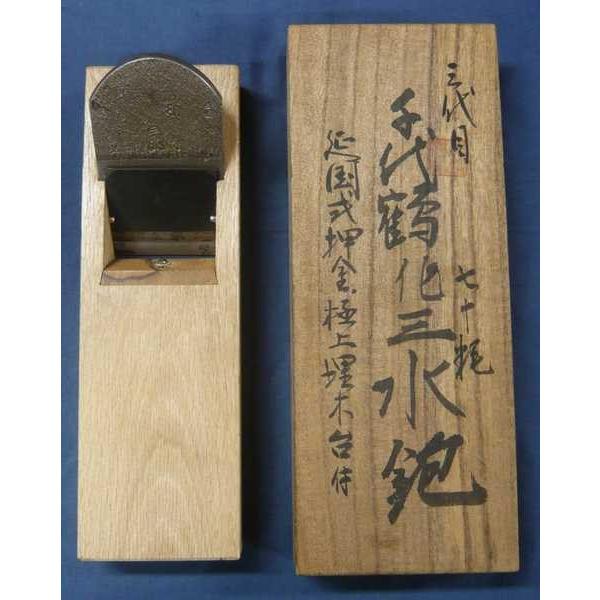 三代目
千代鶴作三水鉋
七十粍
延国式押金極上埋木台付